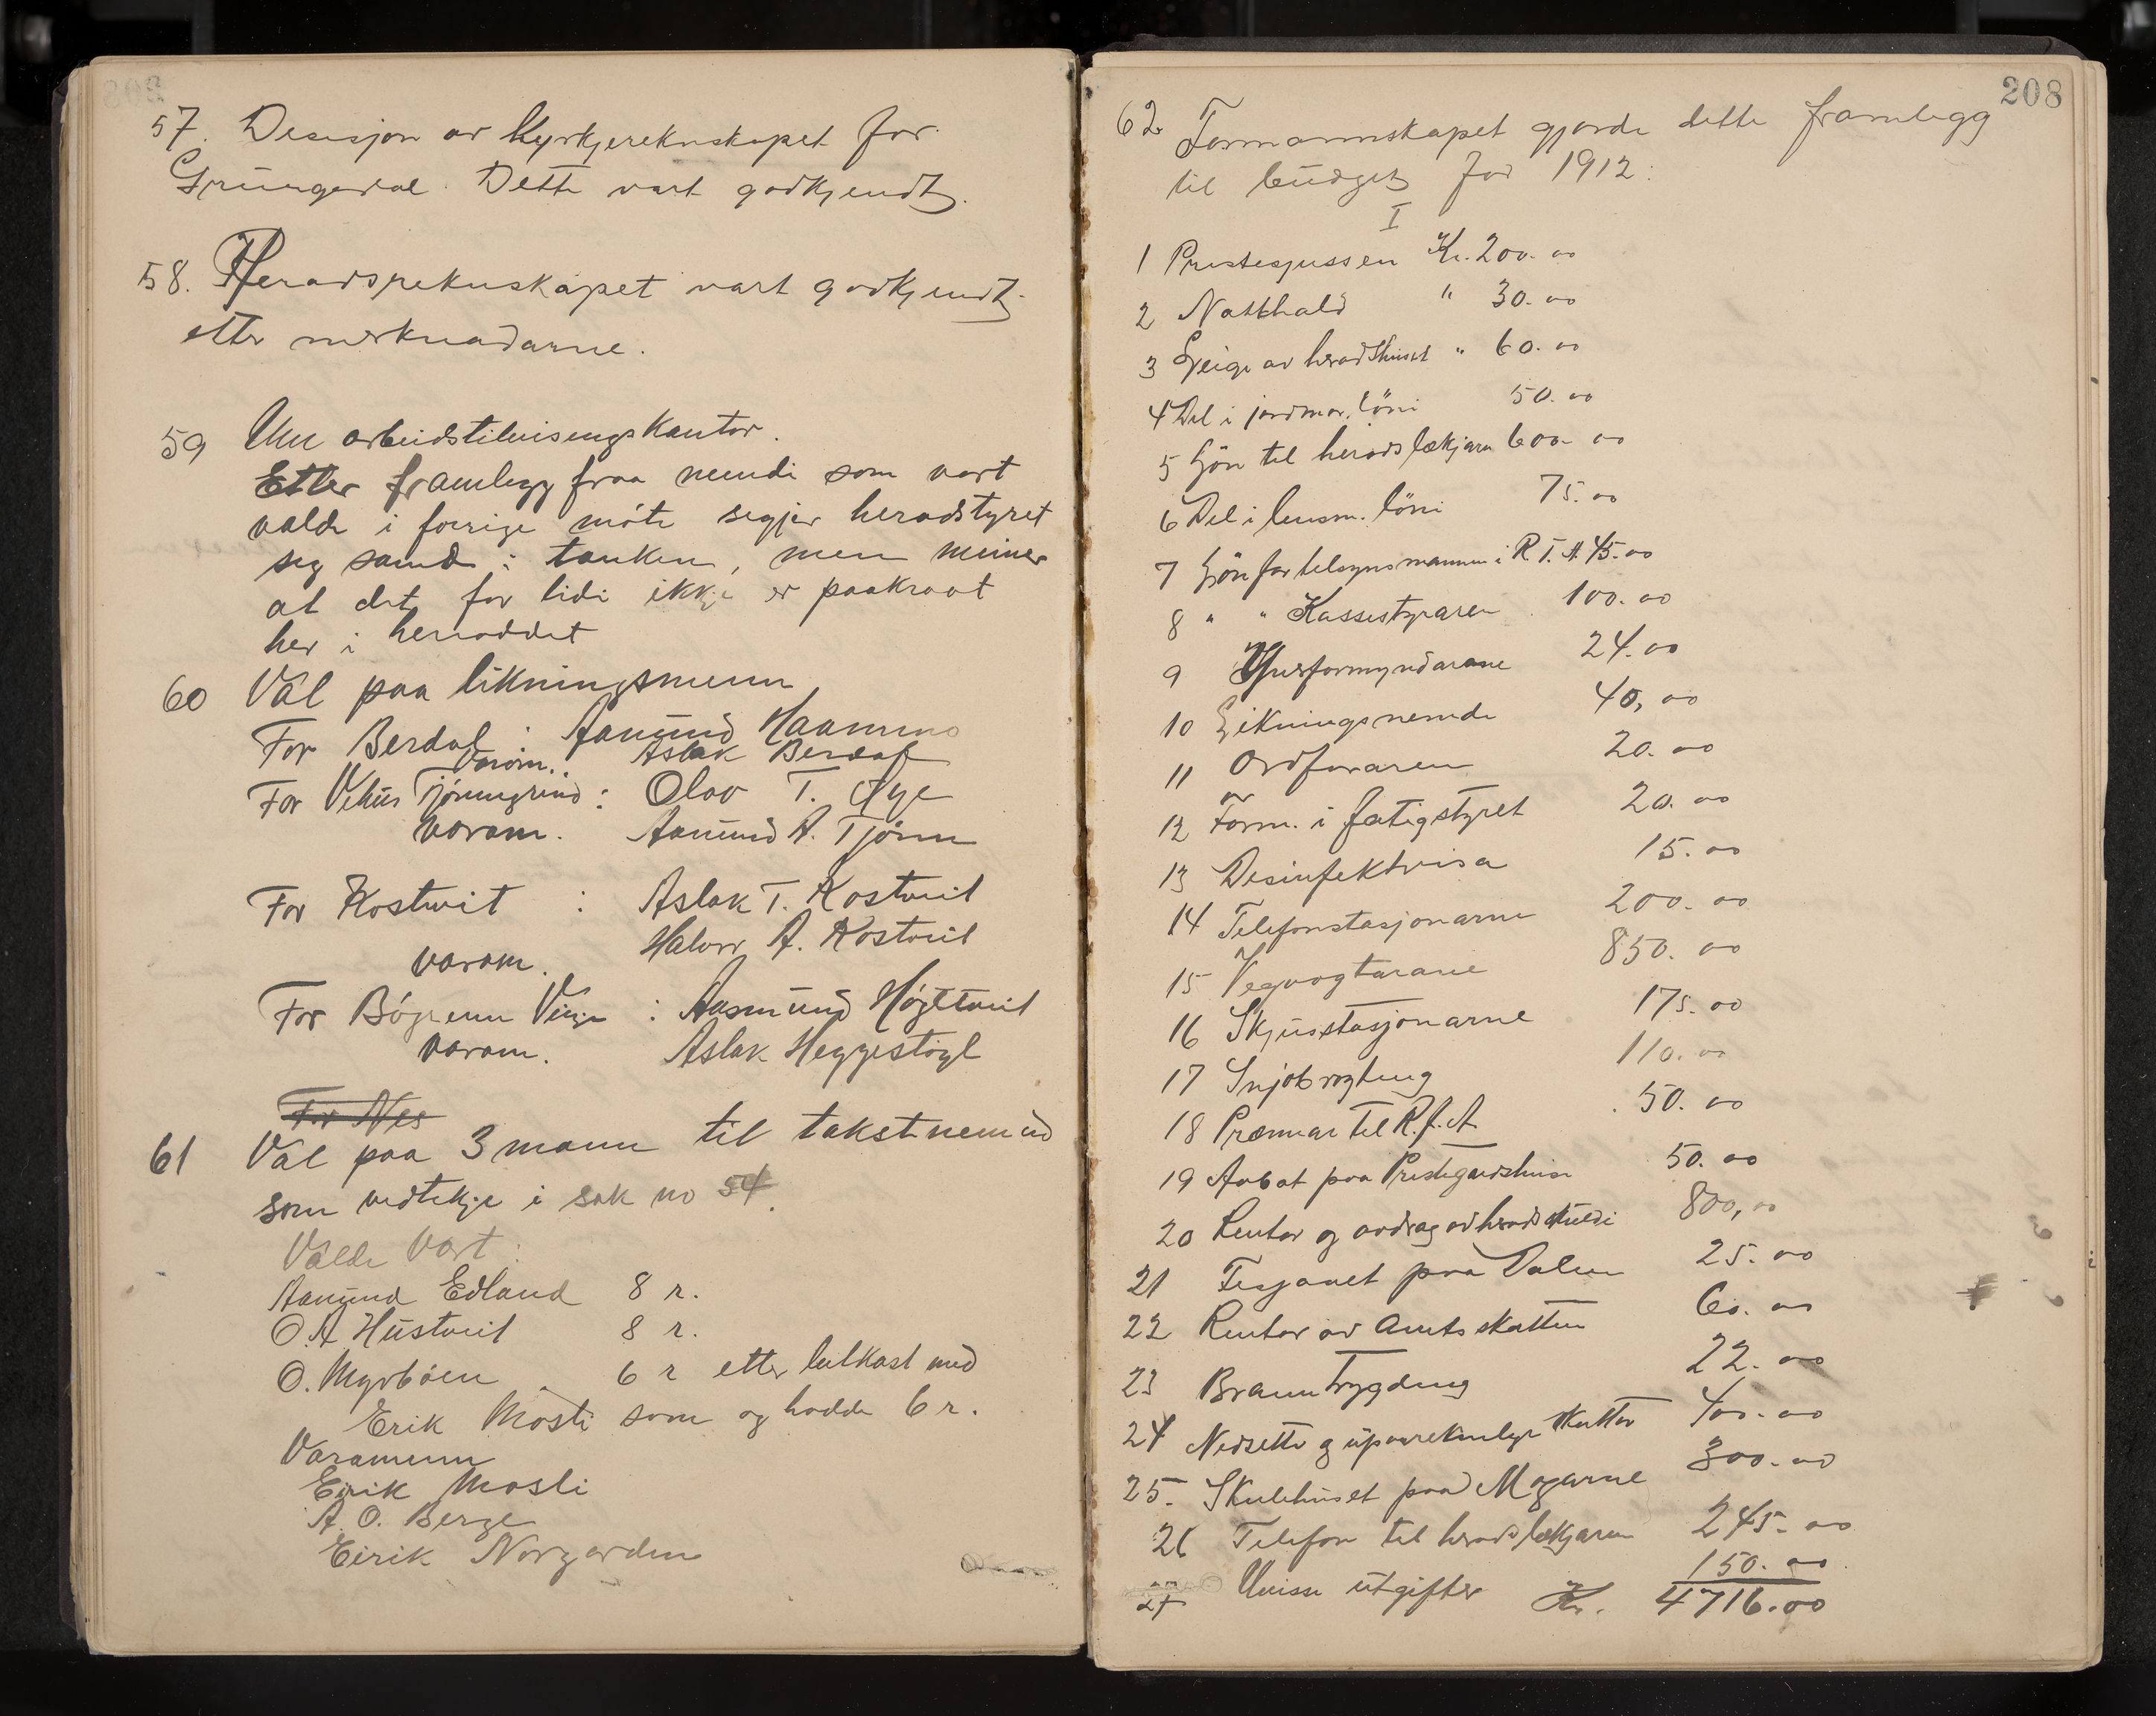 57. Desisjon av Kyrkjereknskapet for
Grungedal. Dette vart godkjendt.
58. Heradsrekneskapet vart godkjendt
etter merknadarne.
59 Um arbeidstilvisingskontor.
Etter framlegg fraa nemdi som vart
valde i forrige möte segjer heradstyret
seg samd i tanken, men meiner
at det for tidi ikkje er paakravt
her i heraddet
60 Val paa likningsmenn
For Berdal : Aamund Haammo
Varam. : Aslak Berdal
For Vehus Tjönngrend : Olav T. Öye
varam. Aamund A. Tjönn
For Kostveit : Aslak T. Kostveit
varam. Halvor A. Kostveit
For Bögrenn Vinje : Aasmund Högetveit
varam. Aslak Heggestöyl
For Nes
61 Val paa 3 mann til takstnemnd
som vedtekje i sak no 54.
Valde vart :
Aamund Edland 8 r.
O. A Hustveit 8 r.
O. Myrböen 6 r etter lutkast med
Erik Mosli som og hadde 6 r.
Varamenn
Eirik Mosli
A. O. Berge
Eirik Norgarden
208
62. Formannskapet gjorde dette framlegg
til budget for 1912:
I
1 Prestegussen Kr. 200.00
2 Natthald " 30.00
3 Leige av heradshuset " 60.00
4 Del i jordmor. löni 50.00
5 Lön til heradslækjarn 600.00
6 Del i lensm. löni 75.00
7 Lön for tilsynsmannen i R. T. A. 45.00
8 " " Kassestyraren 100.00
9 Yverformyndarane 24.00
10 Likningsnemdi 40,00
11 Ordföraren 20.00
12 Form. i fatigstyret 20.00
13 Desinfektrisa 15.00
14 Telefonstasjonarne 200.00
15 Vegvogtarane 850.00
16 Skjusstasjonarne 175.00
17 Snjobrogting 110.00
18 Præmiar til R. f. A. 50.00
19 Avbot paa Prestegardshusi 50.00
20 Rentor og avdrag av heradskuldi 800,00
21 Tesjonet paa Dalen 25.00
22 Rentor av Amtsskatten 60.00
23 Branntrygding 22.00
24 Nedsette og upaareknelege skattar 400.00
25. Skulehuset paa Mogarne 300.00
26 Telefon til heradslækjaren 245.00
27 Umisse utgifter 150.00
Kr. 4716.00